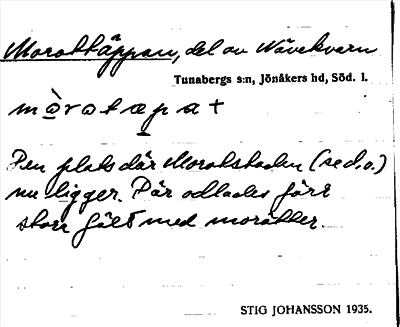 Morottäppan, del av Nävekvarn
Tunabergs s:n, Jönåkers hd, Söd. l.
Den plats där Morotstaden (se d.o.)
nu ligger. Där odlades förr
stora fält med morötter.
STIG JOHANSSON 1935.